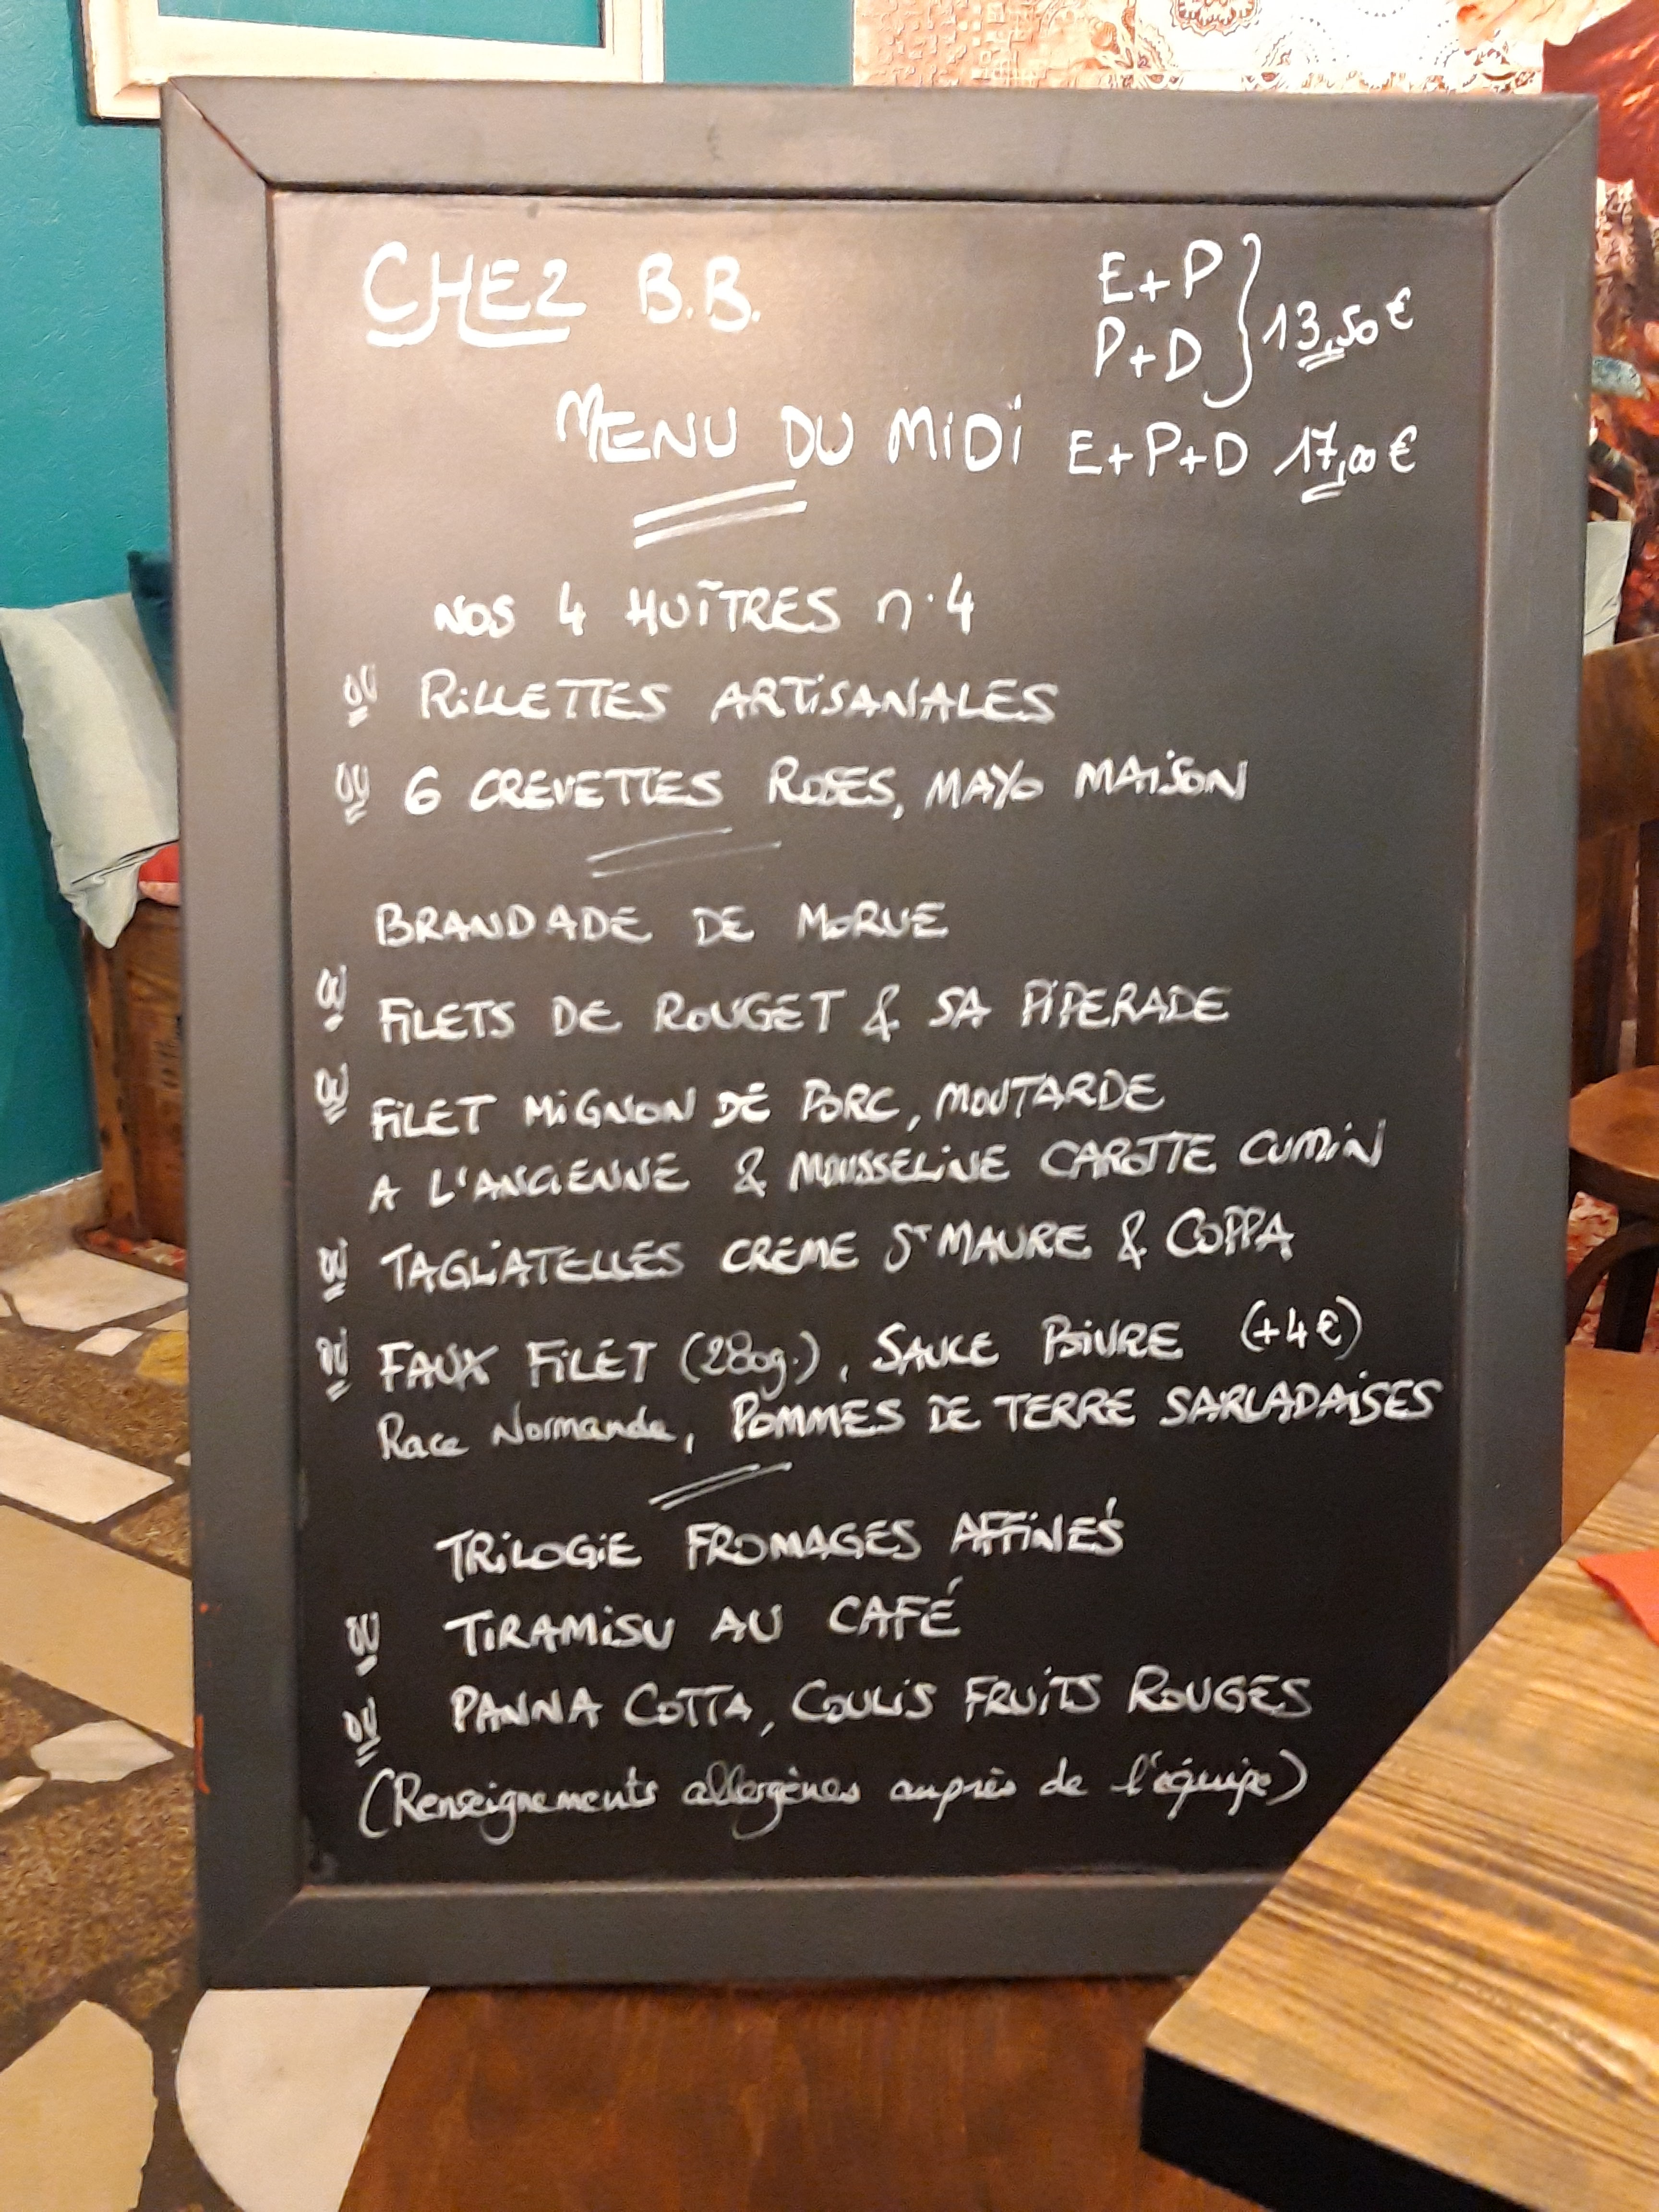 CHEZ B.B.
E+P
P+D } 13,50€
MENU DU MIDI
E+P+D 17,00€
NOS 4 HUÎTRES n°4
ou RILLETTES ARTISANALES
ou 6 CREVETTES ROSES, MAYO MAISON
BRANDADE DE MORUE
ou FILETS DE ROUGET & SA PIPERADE
ou FILET MIGNON DE PORC, MOUTARDE
A L'ANCIENNE & MOUSSELINE CAROTTE CUMIN
ou TAGLIATELLES CREME ST MAURE & COPPA
ou FAUX FILET (280g.), SAUCE POIVRE (+4€)
Race Normande, POMMES DE TERRE SARLADAISES
TRILOGIE FROMAGES AFFINÉS
ou TIRAMISU AU CAFÉ
ou PANNA COTTA, COULIS FRUITS ROUGES
(Renseignements allergènes auprès de l'équipe)